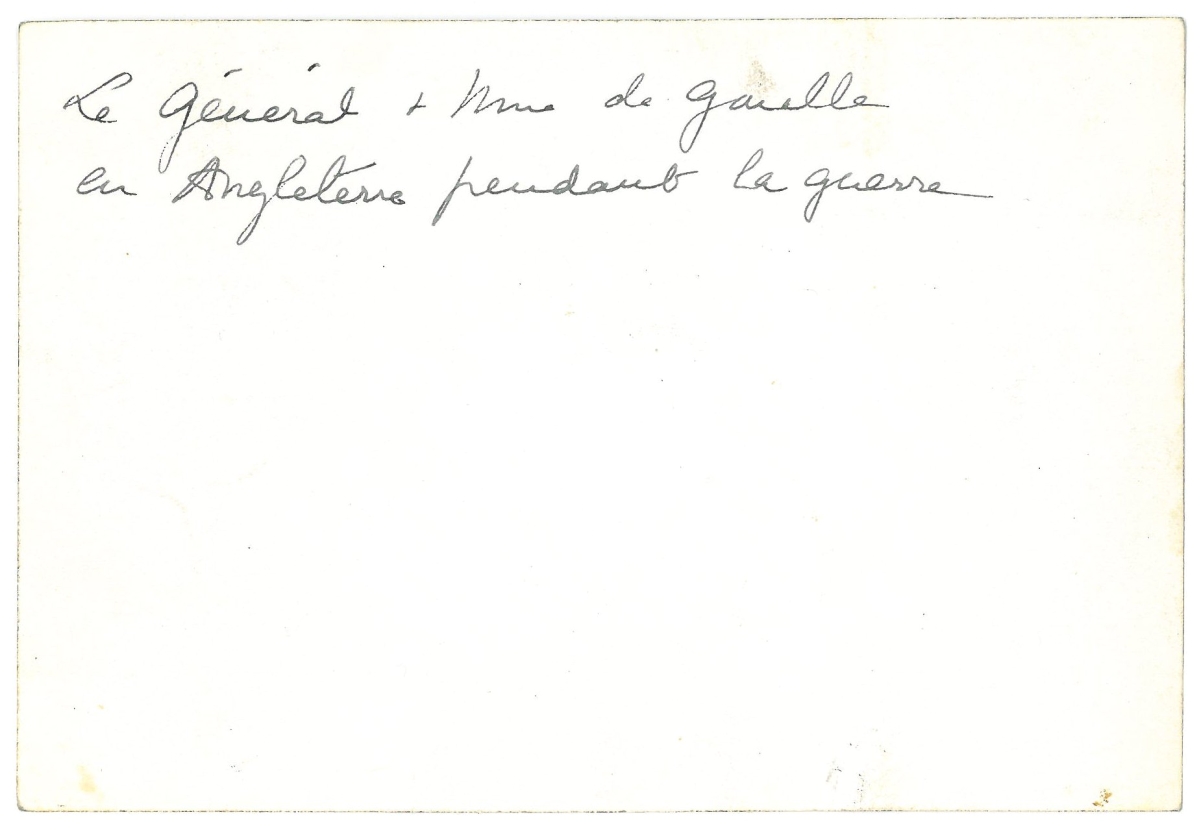 Le Général + Mme de Gaulle
en Angleterre pendant la guerre